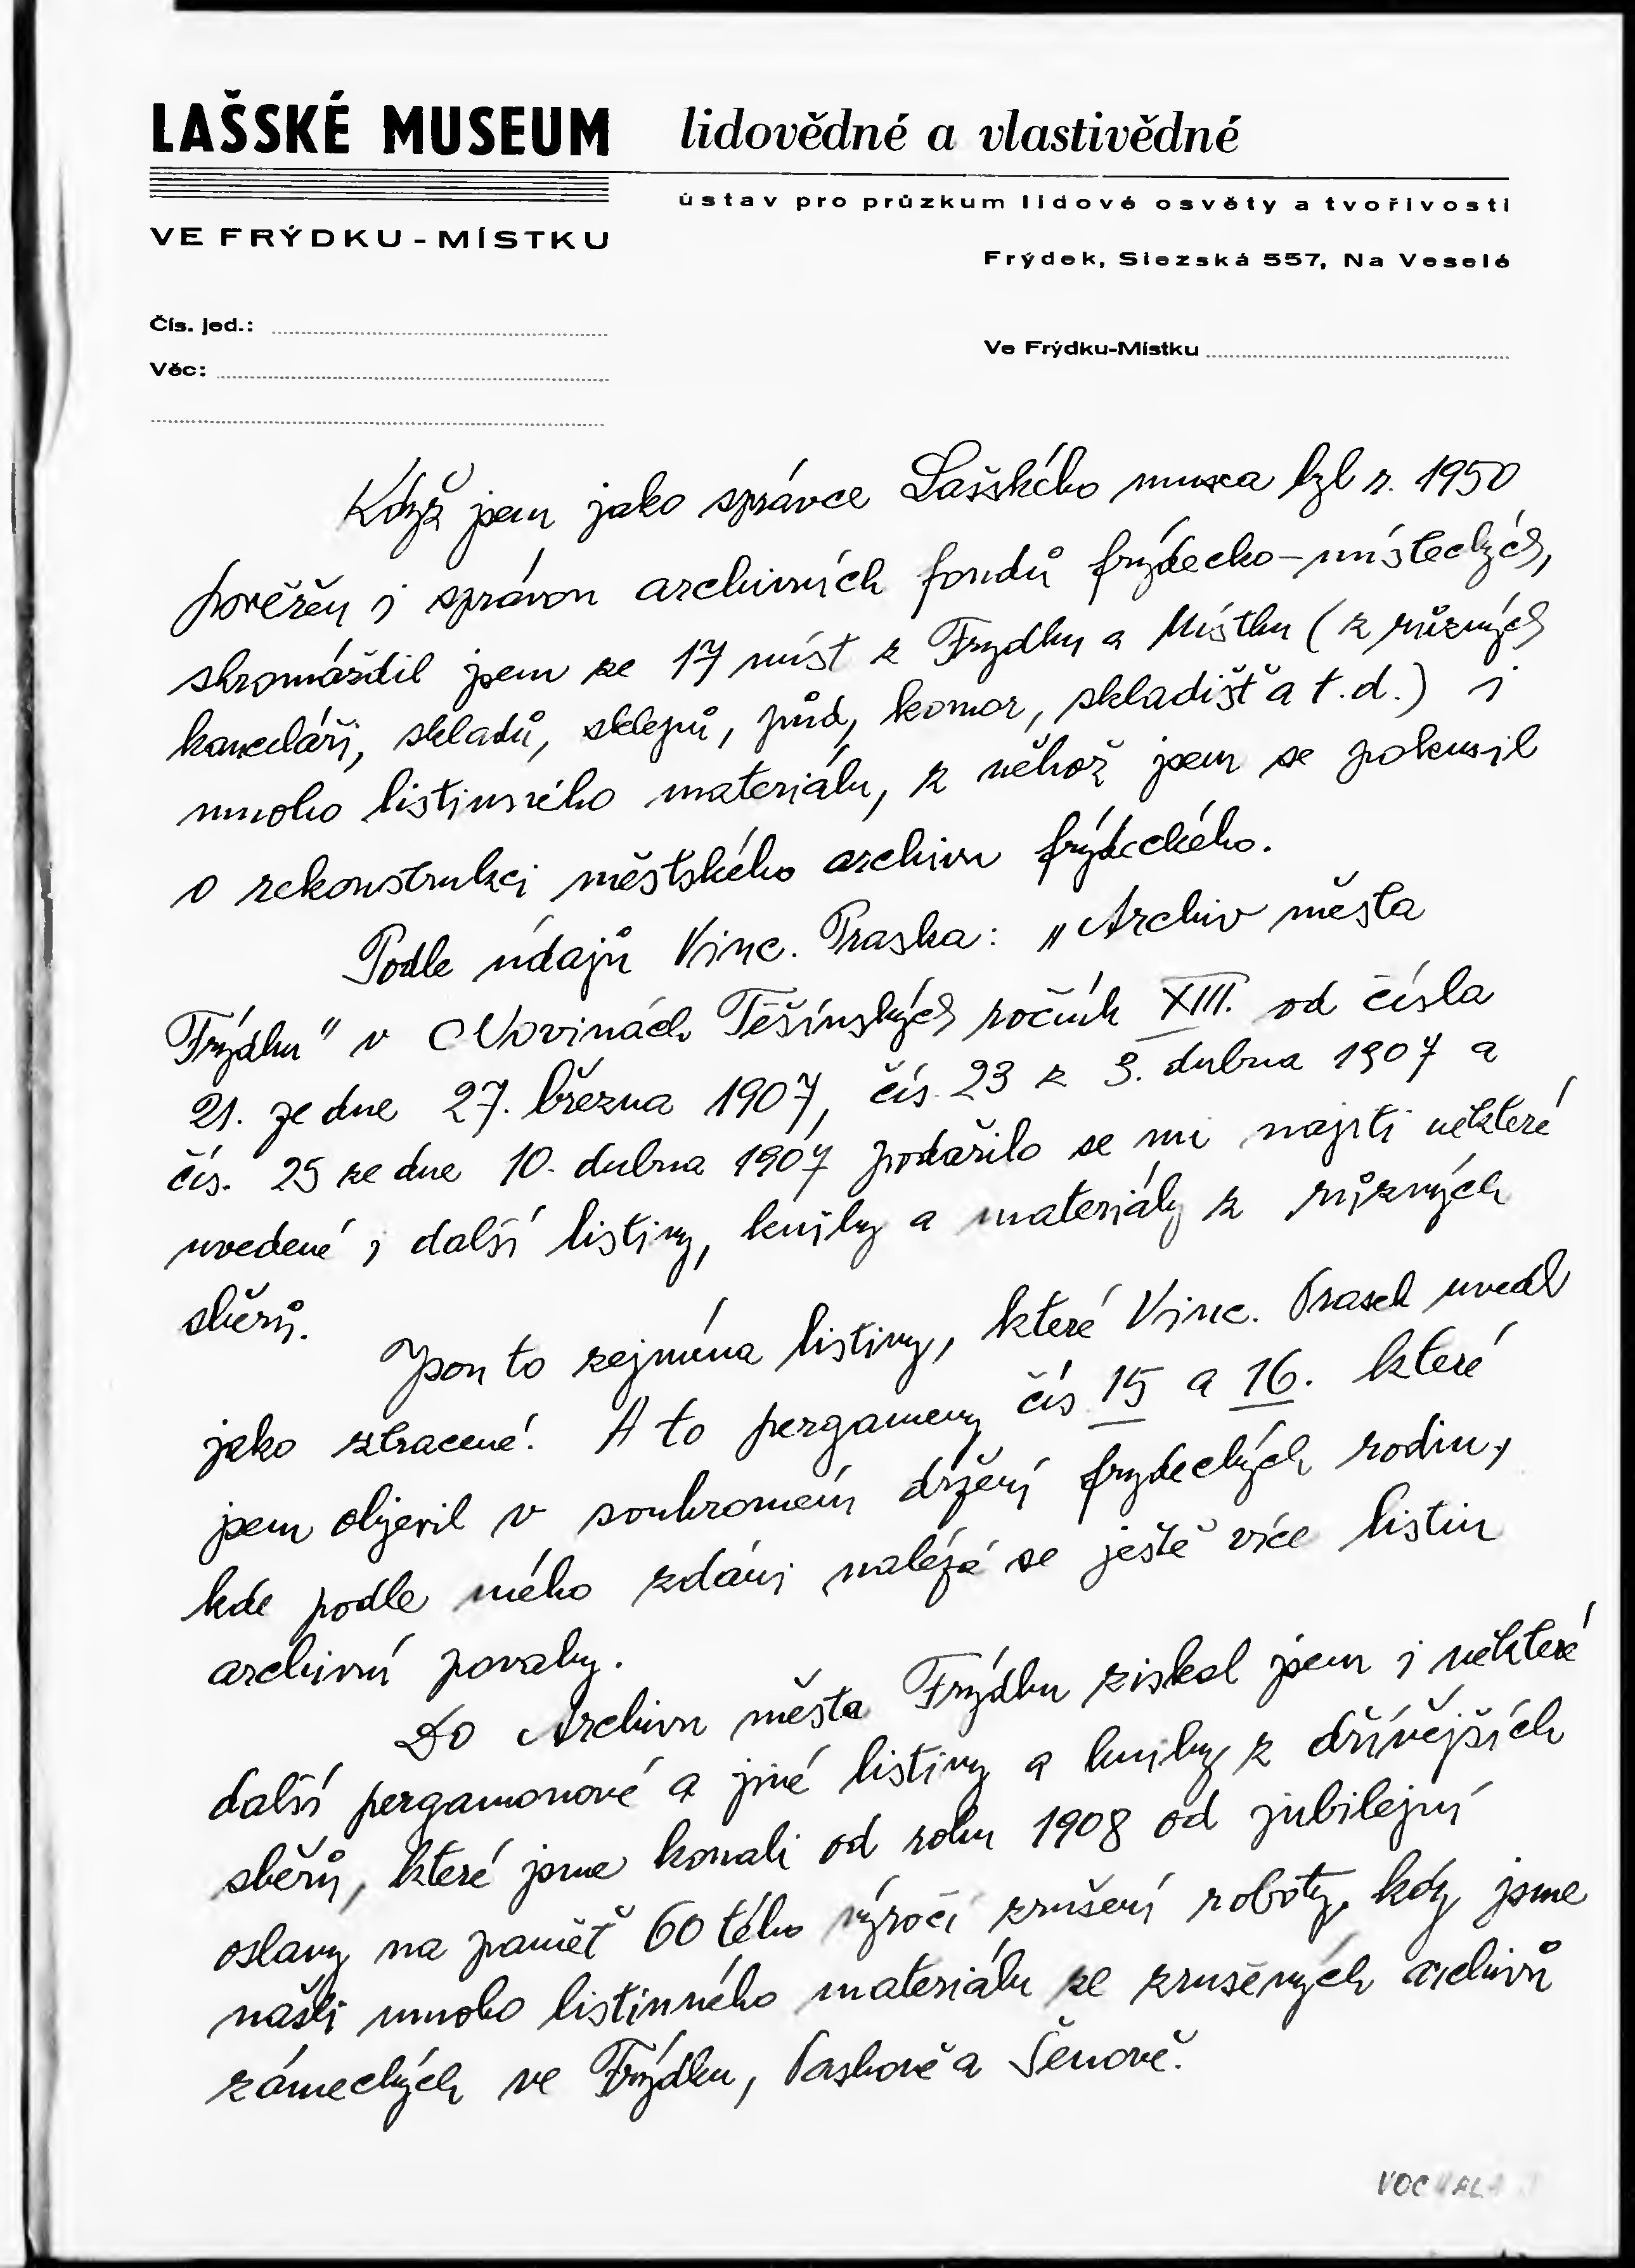 LAŠSKÉ MUSEUM lidovědné a vlastivědné
ústav pro průzkum lidové osvěty a tvořivosti
VE FRÝDKU-MÍSTKU
Frýdek, Slezská 557, Na Veselé
Čís. jed.:
Ve Frýdku-Místku
Věc:
Když jsem jako správce Lašského musea byl r. 1950
pověřen i správou archivních fondů frýdecko-místeckých,
shromáždil jsem ze 17 míst z Frydku a Místku (z různých
kanceláří, skladů, sklepů, půd, komor, skladišť a t.d.) i
mnoho listinného materiálu, z něhož jsem se pokusil
o rekonstrukci městského archivu frýdeckého.
Podle údajů Vinc. Praska: „Archiv města
Frýdku" v Novinách Těšínských ročník XIII. od čísla
21. ze dne 27. března 1907, čís. 23 z 3. dubna 1907 a
čís. 25 ze dne 10. dubna 1907 podařilo se mi najíti některé
uvedené i další listiny, knihy a materiály z různých
sběrů.
Jsou to zejména listiny, které Vinc. Prasek uvedl
jako ztracené. A to pergameny čís. 15 a 16. které
jsem objevil v soukromém držení frydeckých rodin,
kde podle mého zdání nalézá se ještě více listin
archivní povahy.
Do Archivu města Frýdku získal jsem i některé
další pergamonové a jiné listiny a knihy z dřívějších
sběrů, které jsme konali od roku 1908 od jubilejní
oslavy na paměť 60 tého výročí zrušení roboty, kdy jsme
našli mnoho listinného materiálu ze zrušených archivů
zámeckých ve Frýdku, Paskově a Šenově.